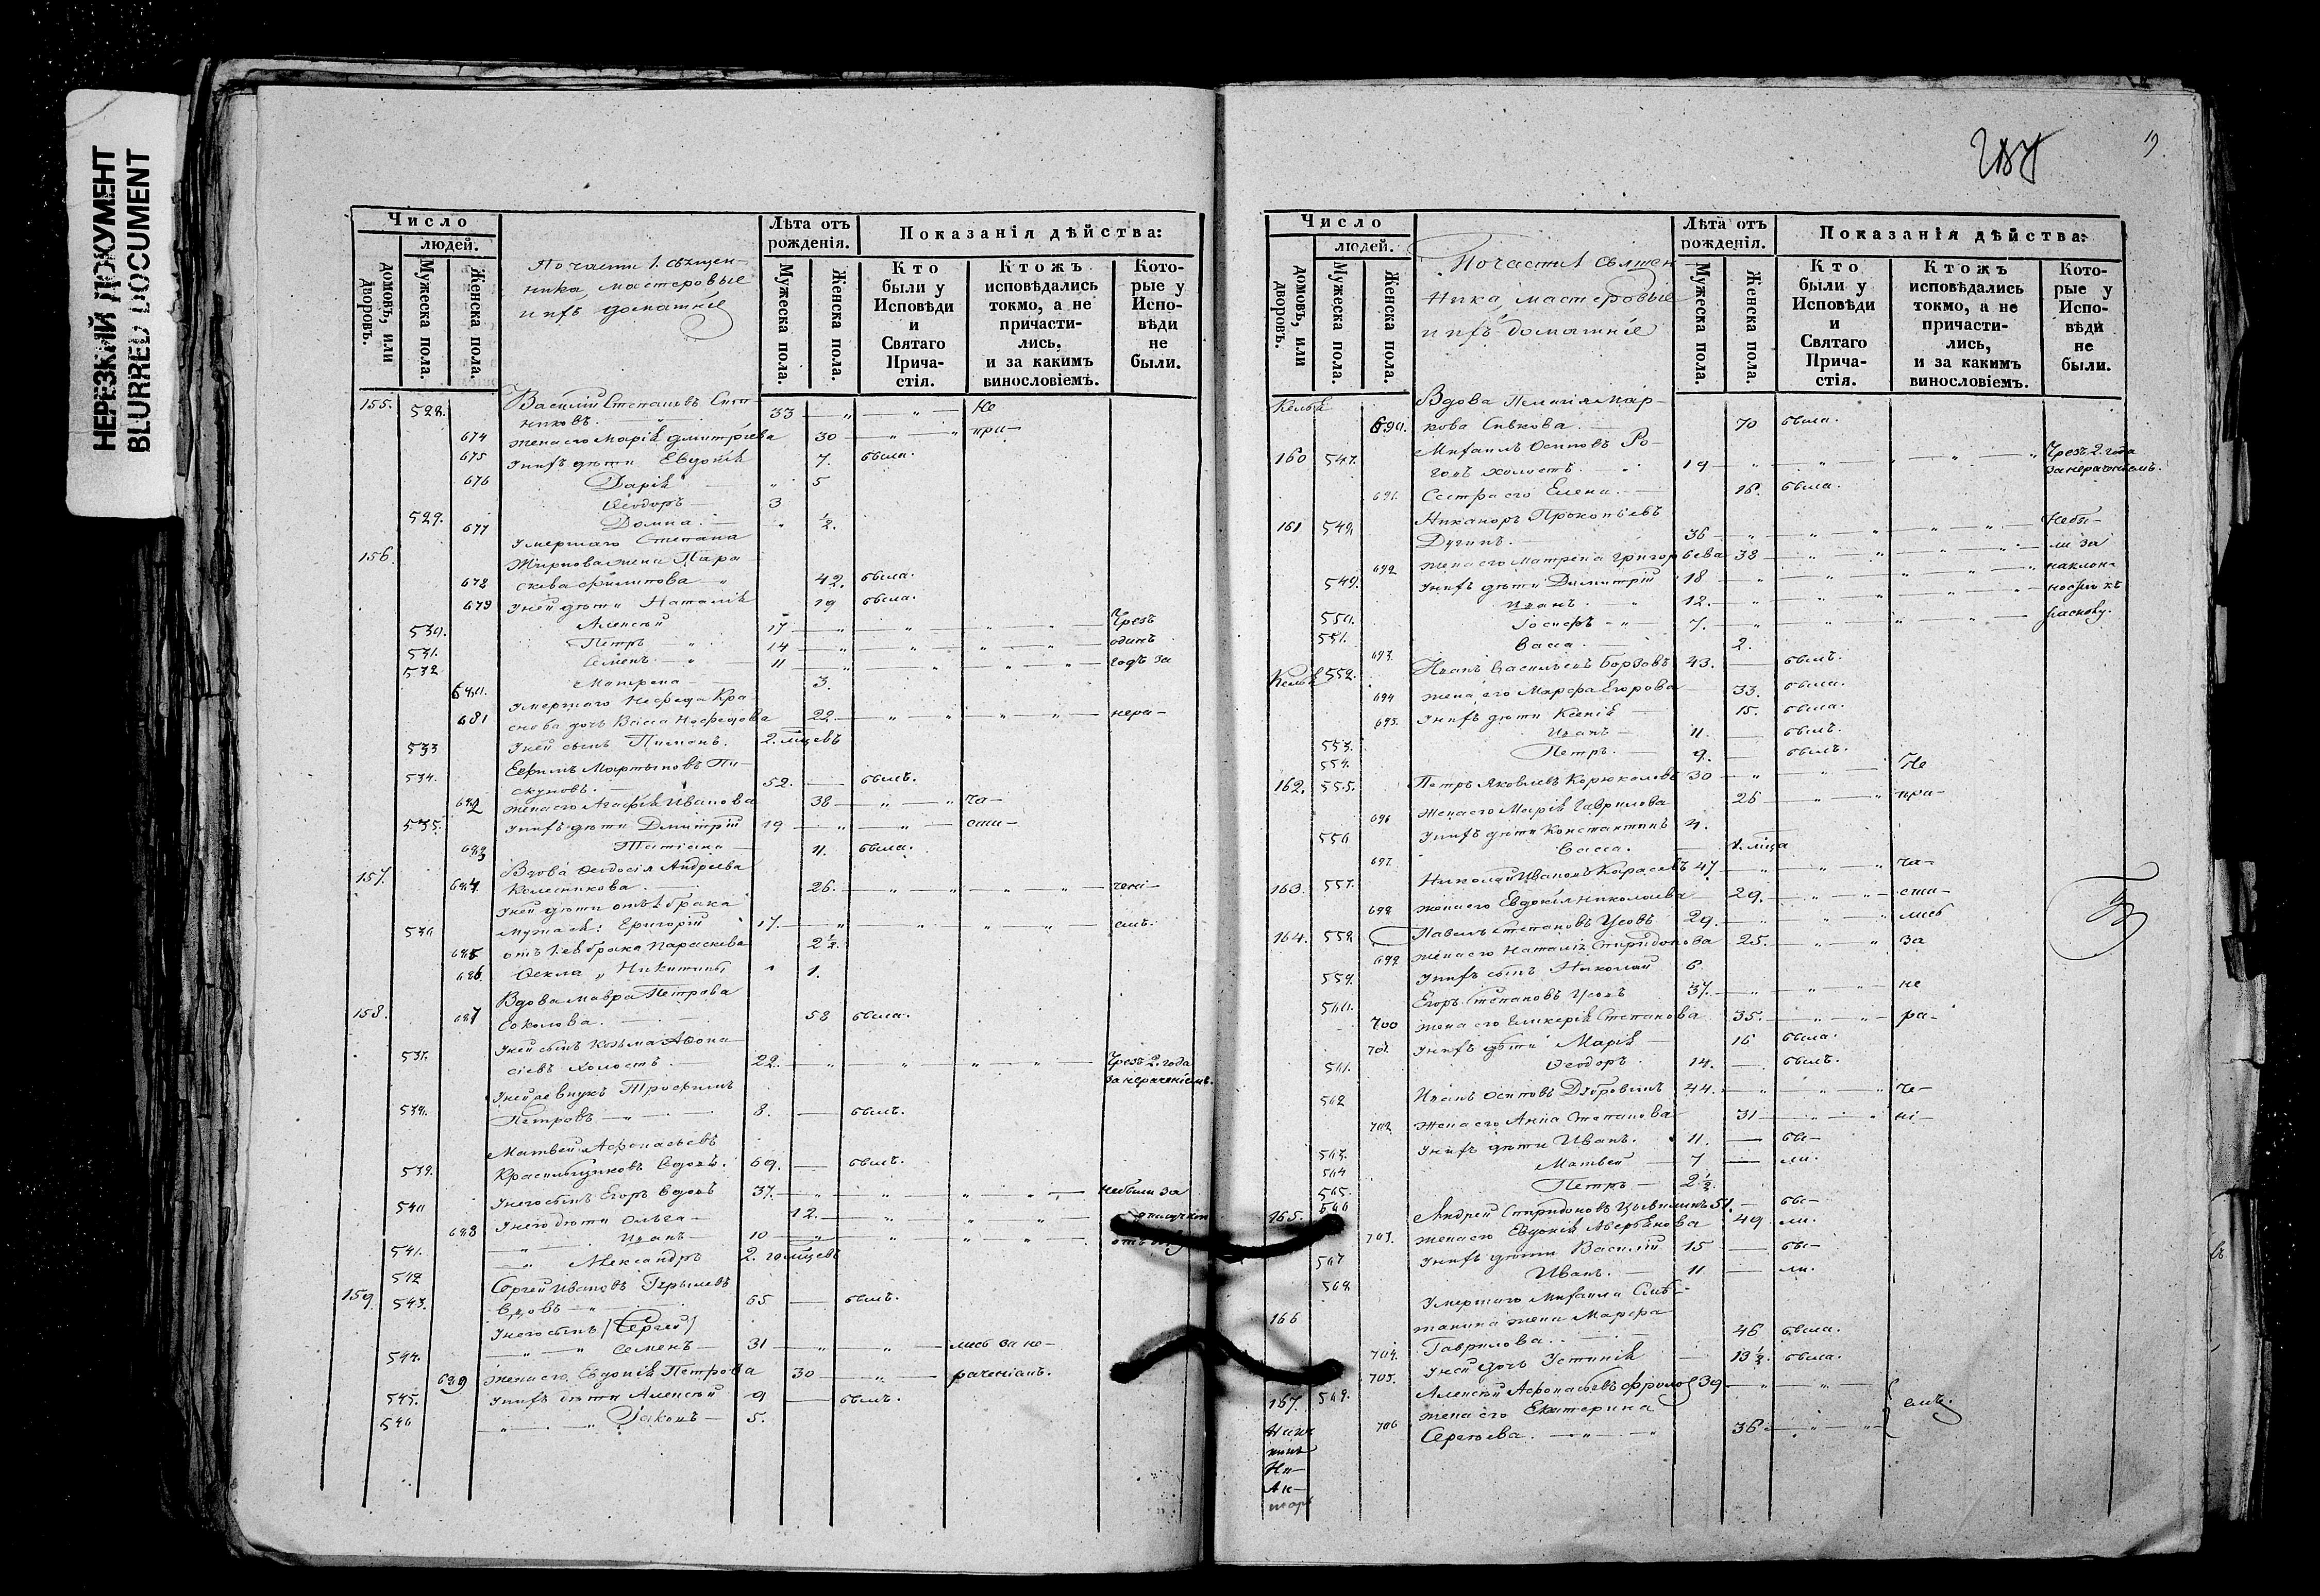 НЕРЕЗКИЙ ДОКУМЕНТ
BLURRED DOCUMENT
Число
людей.
домовъ, или дворовъ.
Мужеска пола.
Женска пола.
По части 1. священ-
ника мастеровые
и ихъ домашніе
Лѣта отъ рожденія.
Мужеска пола.
Женска пола.
Показанія дѣйства:
Кто были у Исповѣди и Святаго Прича-стія.
Ктожъ исповѣдались токмо, а не причасти-лись, и за какимъ винословіемъ.
Кото-рые у Испо-вѣди не были.
155. 528. Василій Степановъ
никовъ. 33 Не
674 жена его Марія Дмитріева 30 при-
675 у нихъ дѣти Евдокія 7. была.
676 Дарія 5
529. Ѳеодоръ 3
677 Домна. ½.
156. умершаго Степана
Жирнова жена Пара-
678 скева Филипова 42. была.
679 у ней дѣти Наталія 19 была.
530. Алексѣй 17 Чрезъ
531. Петръ 14 одинъ
532 Семенъ 11 годъ за
680. Матрена 3.
умершаго Нефеда Кра-
681 снова дочь Васса Нефедова 22 нера-
533 у ней сынъ Пименъ. 2. мѣсцевъ
Ефимъ Мартыновъ Пи-
534. скуновъ. 52. былъ.
682 жена его Агафія Иванова 38 ча-
535. у нихъ дѣти Дмитрій 19 сти-
683 Татіана 11. была.
157. Вдова Ѳеодосія Андреева
684. Колесникова. 26. чені-
у ней дѣти отъ 1. брака
536 мужа: Григорій 17. емъ.
685 отъ 1. брака Параскева 2½.
686. Ѳекла 1.
Вдова Мавра Петрова
158. 687 Соколова. 58 была.
у ней сынъ Козьма Аѳона-
537. сіевъ холостъ 22. Чрезъ 2 года
за нераченіемъ.
у ней же внукъ Трофимъ
538. Петровъ 8. былъ.
Матвей Афонасьевъ
539. Красильщиковъ вдовъ. 69. былъ.
540 у него сынъ Егоръ вдовъ 37. небыли за
688 у него дѣти Ольга 12.
541. Иванъ 10
542 Александръ 2. мѣсцевъ
159. 543. Сергей Ивановъ
вдовъ 65 былъ.
у него сынъ (Сергей)
544. Семенъ 31 лись за не-
689 жена его Евдокія Петрова 30 раченіемъ.
545. у нихъ дѣти Алексѣй 9 былъ.
546 Іаковъ 5.
Число
людей.
домовъ, или дворовъ.
Мужеска пола.
Женска пола.
По части 1 священ
ника мастеровые
и ихъ домашніе
Лѣта отъ рожденія.
Мужеска пола.
Женска пола.
Показанія дѣйства:
Кто были у Исповѣди и Святаго Прича-стія.
Ктожъ исповѣдались токмо, а не причасти-лись, и за какимъ винословіемъ.
Кото-рые у Испо-вѣди не были.
Келья Вдова Пелагія Мар-
690. кова Сивкова. 70 была.
160 547. Михаилъ Осиповъ Ро-
говъ холостъ. 19 Чрезъ 2. года
за нераченіемъ.
691. Сестра его Елена. 18. была.
161 548. Никаноръ Прокопьевъ
36 Небы-
692 жена его Матрена Григорьева 38 ли за
549. у нихъ дѣти Димитрій 18 наклон-
550. Иванъ. 12. ностію къ
551. Іосифъ 7. расколу.
693. Васса. 2.
Келья 552. Иванъ Васильевъ Борзовъ 43. былъ.
694 жена его Марфа Егорова 33. была.
695. у нихъ дѣти Ксенія 15. была.
553. Иванъ 11. былъ.
554. Петръ. 9. былъ.
162. 555. Петръ Яковлевъ 30 Не
696 жена его Марія Гаврилова 26 при-
556 у нихъ дѣти Константинъ 4.
697. Васса. 1. мѣсца
163. 557. Николай Ивановъ Карасевъ 47 ча-
698 жена его Евдокія Николаева 29. сти-
164. 558 Павелъ Степановъ Усовъ 29. лись
699 жена его Наталія Спиридонова 25. за
559. у нихъ сынъ Николай 6
560. Егоръ Степановъ Усовъ 37. не
700 жена его Гликерія Степанова 35. ра-
701. у нихъ дѣти Марія 16 была.
561. Ѳеодоръ. 14. былъ.
562 Иванъ Осиповъ Дубровинъ 44. че-
702. жена его Анна Степанова 31 ні-
563. у нихъ дѣти Иванъ. 11. бы-
564 Матвей 7 ли.
565. Петръ 2½.
165. 566 Андрей Спиридоновъ 51. бы-
703. жена его Евдокія Аверьянова 49 ли.
567 у нихъ дѣти Василій 15 бы-
568. Иванъ. 11 ли.
166 умершаго Михаила
жена Марфа
704. Гаврилова. 46 была.
705. у ней дочь Устинія 13½. была.
167. 569. Алексѣй Афонасьевъ Фролов 39
706 жена его Екатерина емъ.
Сергеева. 36